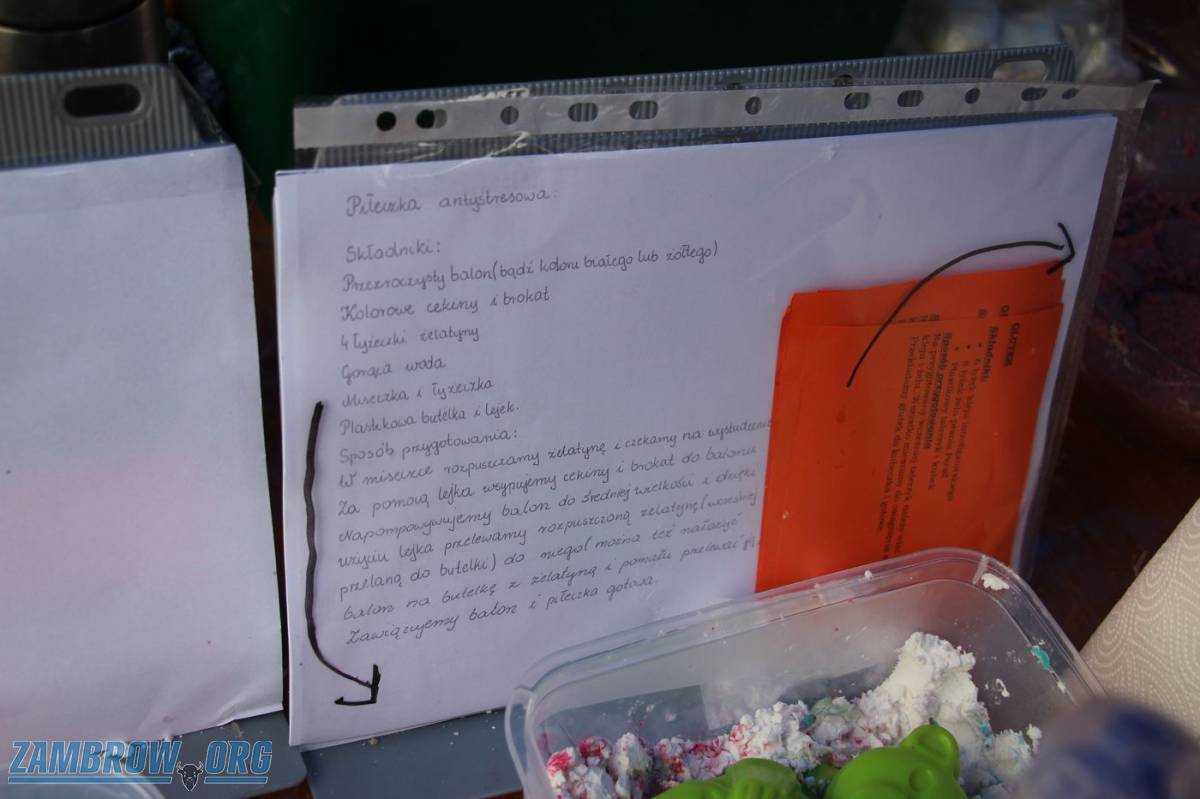 Piłeczka antystresowa:
Składniki:
Przezroczysty balon (bądź koloru białego lub żółtego)
Kolorowe cekiny i brokat
4 łyżeczki żelatyny
Gorąca woda
Miseczka i łyżeczka
Plastikowa butelka i lejek.
Sposób przygotowania:
W miseczce rozpuszczamy żelatynę i czekamy na wystudzenie
Za pomocą lejka wsypujemy cekiny i brokat do balonu.
Napompowujemy balon do średniej wielkości i dzięki
użyciu lejka przelewamy rozpuszczoną żelatynę (wcześniej
przelaną do butelki) do niego (można też nałożyć
balon na butelkę z żelatyną i pomału przelewać ją.
Zawiązujemy balon i piłeczka gotowa.
GLUTEK
Składniki
Sposób przygotowania
ZAMBROW.ORG